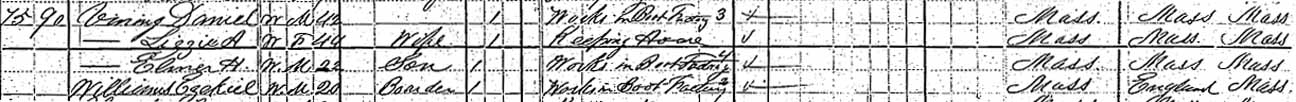 75 90 Vining Daniel W. M 42 1 Works in Boot Factory 3 Mass. Mass Mass
— Lizzie A W. F 44 Wife 1 Keeping House Mass Mass. Mass
— Elmer H. W. M. 22 Son 1 Works in Boot Factory 4 Mass. Mass. Mass
Williams Ezekiel W. M 20 Boarder 1 Works in Boot Factory Mass. England Mass.